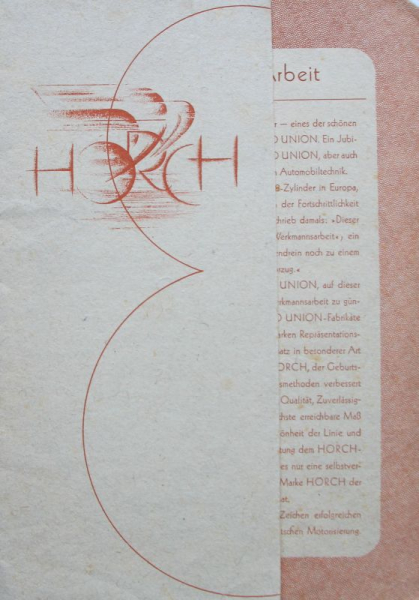 HORCH
Arbeit
r — eines der schönen
O UNION. Ein Jubi-
O UNION, aber auch
n Automobiltechnik.
8-Zylinder in Europa,
der Fortschrittlichkeit
chrieb damals: »Dieser
Werkmannsarbeit«, ein
endrein noch zu einem
rzeug.«
UNION, auf dieser
erkmannsarbeit zu gün-
O UNION-Fabrikate
arken Repräsentations-
satz in besonderer Art
HORCH, der Geburts-
smethoden verbessert
Qualität, Zuverlässig-
chste erreichbare Maß
önheit der Linie und
tung dem HORCH-
es nur eine selbstver-
Marke HORCH der
at.
Zeichen erfolgreichen
tschen Motorisierung.